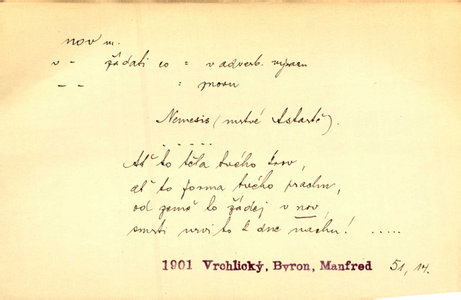 nov m.
v - žádati co = v adverb. výrazu
- - = znovu
Nemesis (mrtvé Astartě).
. . . . .
Ať to těla tvého krov,
ať to forma tvého prachu,
od země to žádej v nov,
smrti urvi to k dne nachu! .....
1901 Vrchlický, Byron, Manfred 51, 14.